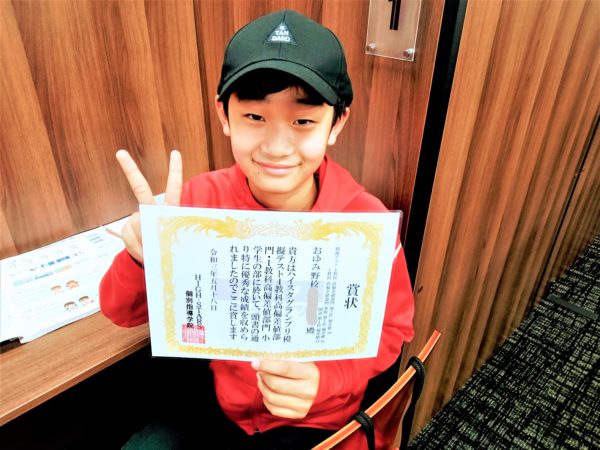 TAN
DARD
1
賞状
おゆみ野校
殿
貴方はハイスタグランプリ模
擬テスト4教科高偏差値部
門・1教科高偏差値部門 小
学生の部に於いて、頭書の通
り特に優秀な成績を収めら
れましたのでここに賞します
令和三年五月十八日
HIGH-STARS
個別指導学院